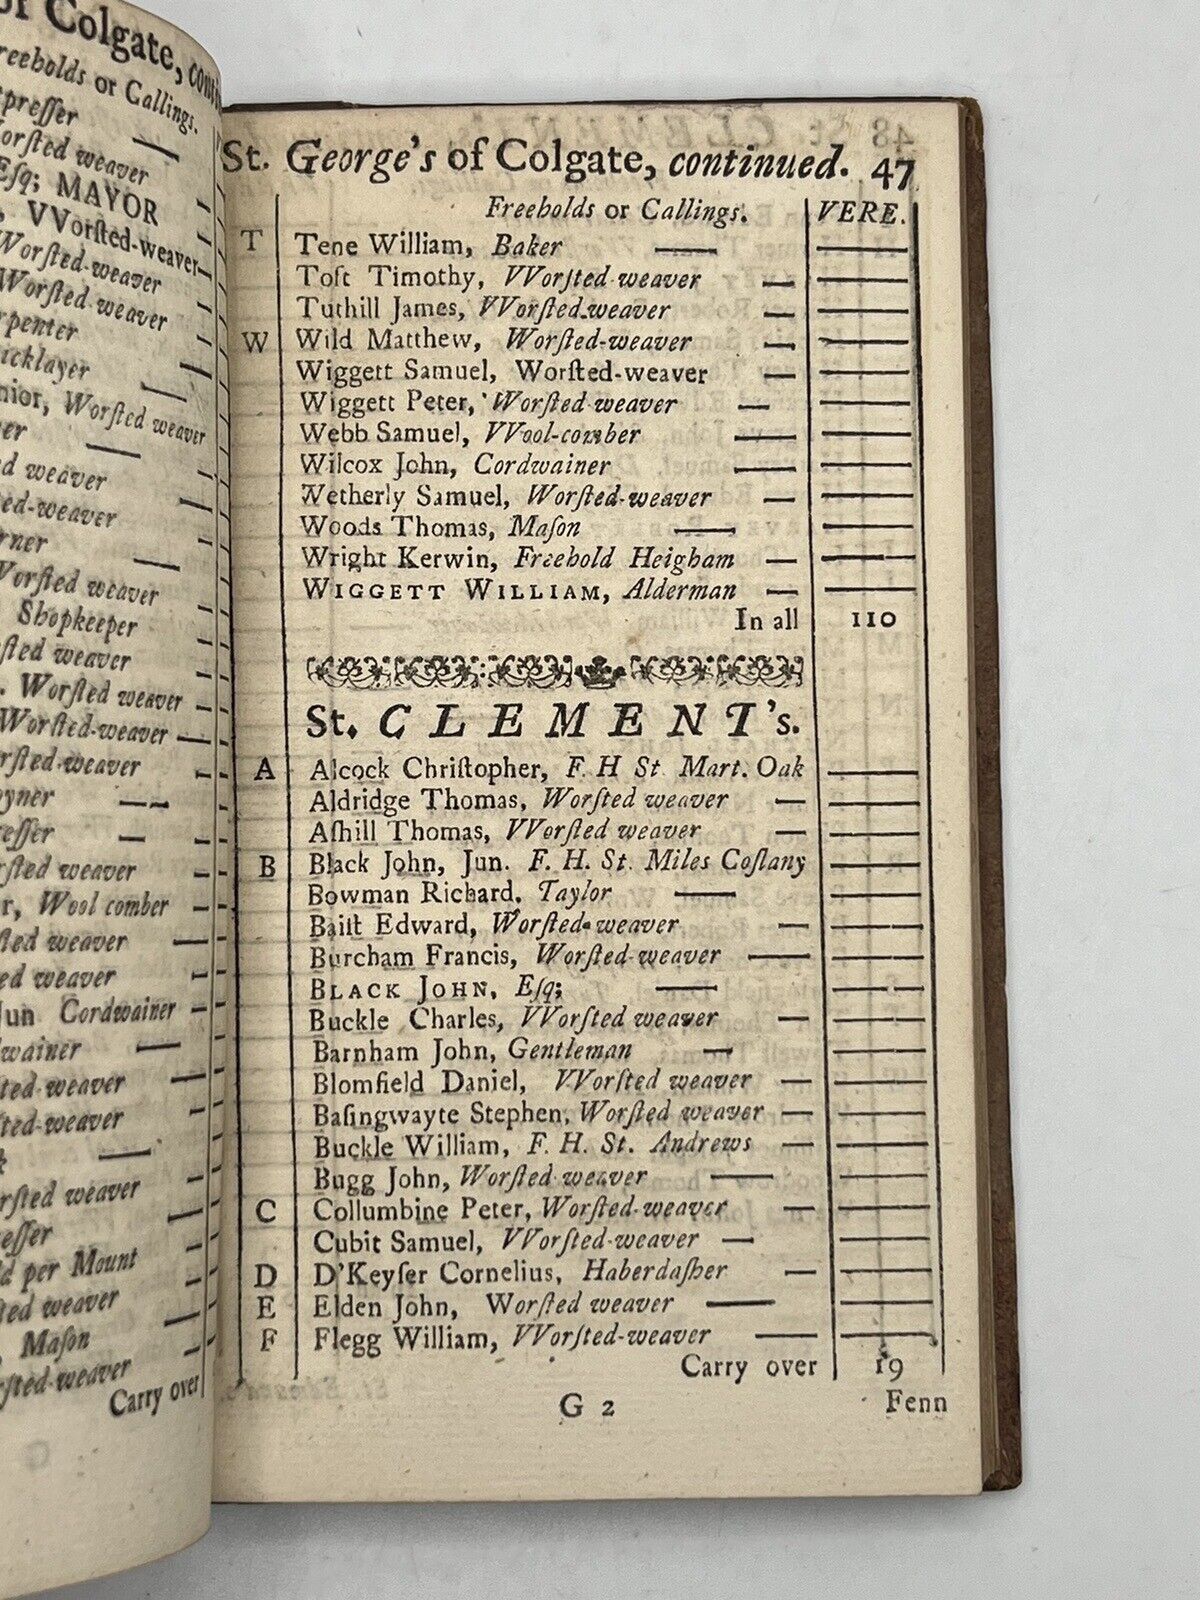 of Colgate,
Freeholds or Callings.
Worsted weaver
Esq; MAYOR
VVorsted-weaver
Worsted-weaver
Worsted-weaver
Worsted weaver
weaver
weaver
Worsted weaver
Shopkeeper
weaver
Worsted weaver
Worsted-weaver
weaver
weaver
Wool comber
weaver
weaver
Jun Cordwainer
weaver
weaver
weaver
per Mount
weaver
Mason
weaver
Carry over
G
St. George's of Colgate, continued. 47
Freeholds or Callings. VERE.
T Tene William, Baker
Toſt Timothy, VVorſted-weaver
Tuthill James, VVorſted-weaver
W Wild Matthew, Worſted-weaver
Wiggett Samuel, Worſted-weaver
Wiggett Peter, Worſted weaver
Webb Samuel, VVool-comber
Wilcox John, Cordwainer
Wetherly Samuel, Worſted-weaver
Woods Thomas, Maſon
Wright Kerwin, Freehold Heigham
WIGGETT WILLIAM, Alderman
In all 110
St. CLEMENT's.
A Alcock Chriſtopher, F. H St Mart. Oak
Aldridge Thomas, Worſted weaver
Aſhill Thomas, VVorſted weaver
B Black John, Jun. F. H. St. Miles Coſlany
Bowman Richard, Taylor
Edward, Worſted-weaver
Burcham Francis, Worſted-weaver
BLACK JOHN, Eſq;
Buckle Charles, VVorſted weaver
Barnham John, Gentleman
Blomfield Daniel, VVorſted weaver
Baſingwayte Stephen, Worſted weaver
Buckle William, F. H. St. Andrews
Bugg John, Worſted weaver
C Collumbine Peter, Worſted-weaver
Cubit Samuel, VVorſted-weaver
D D'Keyſer Cornelius, Haberdaſher
E Elden John, Worſted weaver
F Flegg William, VVorſted-weaver
Carry over 19
G 2 Fenn